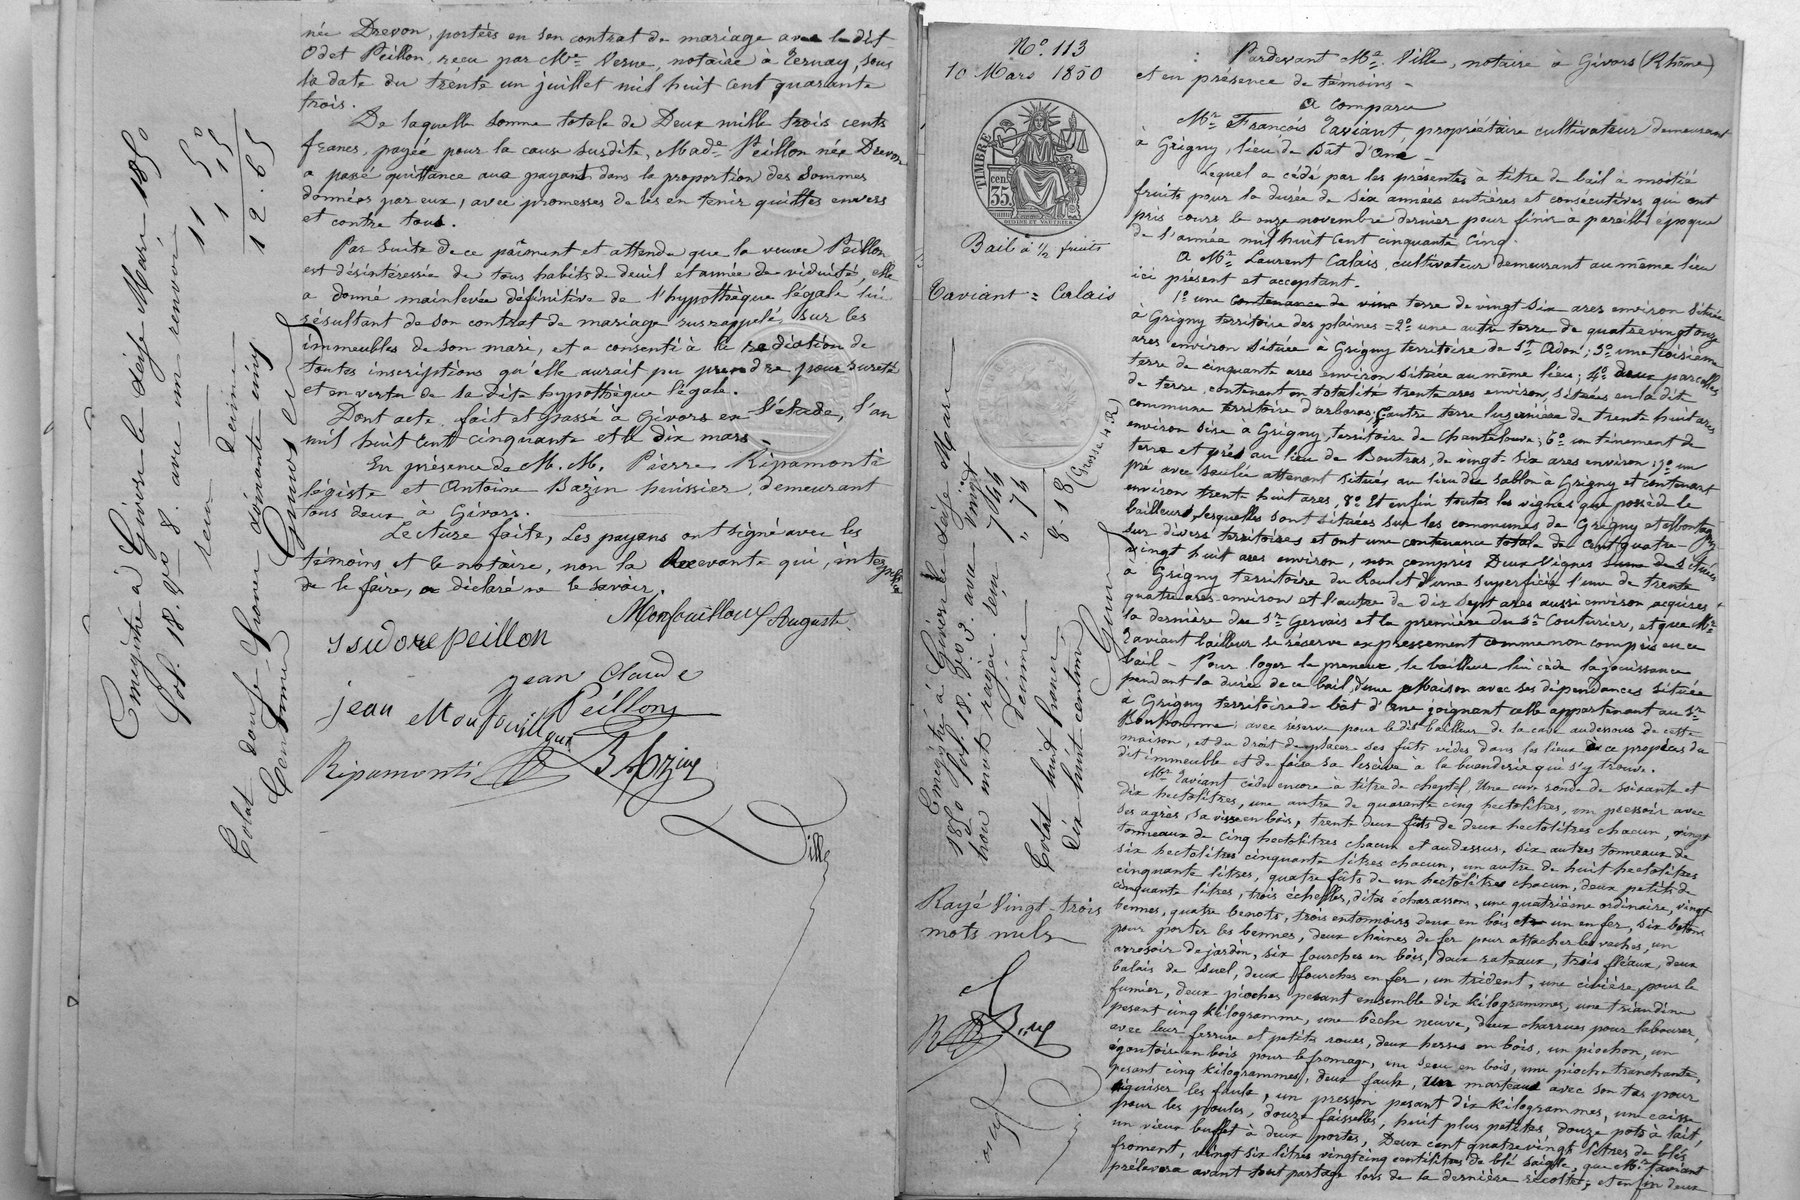 née Drevon, portées en son contrat de mariage avec le dit
Odet Peillon, reçu par Me Verne, notaire à Ternay, sous
la date du trente un juillet mil huit cent quarante
trois.
De laquelle somme totale de Deux mille trois cents
francs, payée pour la cause susdite, Made Peillon née Drevon
a passé quittance aux payans dans la proportion des sommes
données par eux, avec promesses de les en tenir quittes envers
et contre tous.
Par suite de ce paîment et attendu que la veuve Peillon
est désintéressée de tous habits de deuil et année de viduité, elle
a donné mainlevée définitive de l'hypothèque légale lui
résultant de son contrat de mariage susrappelé, sur les
immeubles de son mari, et a consenti à la radiation de
toutes inscriptions qu'elle aurait pu prendre pour sureté
et en vertu de sa dite hypothèque légale.
Dont acte, fait et passé à Givors en l'étude, l'an
mil huit cent cinquante et le dix mars.
En présence de M. M. Pierre Ripamonti
légiste et Antoine Bazin huissier, demeurant
tous deux à Givors.
Lecture faite, les payans ont signé avec les
témoins et le notaire, non la recevante qui, interpellée
de le faire, a déclaré ne le savoir.
Monfouilloux Auguste
isidore peillon
jean Claude
Peillon
jean Monfouilloux
Ripamonti
Bazin
Ville
Enregistré à Givors le seize Mars 1850
fol. 18. Ro 8. avec un renvoi
reçu 11 50
Décime 1 15
12.65
Total douze francs soixante cinq
Centimes
No. 113
10 Mars 1850
TIMBRE
35
Bail à 1/2 fruits
Taviant = Calais
(Grosse 4 R)
Enregistré à Givors le seize Mars
1850 fol. 18. Vo 3. avec vingt
trois mots rayés reçu 7 44
Décime „ 74
8.18
Total huit francs
dix huit centimes
Rayé Vingt-trois
mots nuls
Pardevant Me Ville, notaire à Givors (Rhône)
et en présence de témoins -
A comparu
Mr François Taviant propriétaire cultivateur demeurant
à Grigny, lieu de Bât d'Ane -
Lequel a cédé par les présentes à titre de bail à moitié
fruits pour la durée de six années entières et consécutives qui ont
pris cours le onze novembre dernier pour finir à pareille époque
de l'année mil huit cent cinquante cinq.
A Mr Laurent Calais, cultivateur demeurant au même lieu
ici présent et acceptant.
1o une contenance de vine terre de vingt six ares environ située
à Grigny territoire des plaines = 2o une autre terre de quatre vingt onze
ares environ située à Grigny territoire de St Odon; 3o une troisième
terre de cinquante ares environ située au même lieu; 4o deux parcelles
de terre, contenant en totalité trente ares environ, situées en la dite
commune territoire d'arboras; 5o autre terre luzernière de trente huit ares
environ sise à Grigny, territoire de Chantelouve; 6o un tènement de
terre et pré au lieu de Boutras, de vingt-six ares environ; 7o un
pré avec saulée attenant situés au lieu du Sablon à Grigny et contenant
environ trente huit ares; 8o Et enfin toutes les vignes que possède le
bailleur, lesquelles sont situées sur les communes de Grigny et Montagny
sur divers territoires et ont une contenance totale de cent quatre-
vingt huit ares environ, non compris Deux Vignes situées
à Grigny territoire du Roulet d'une superficie l'une de trente
quatre ares environ et l'autre de dix sept ares aussi environ acquises
la dernière du Sr Gervais et la première du Sr Couturier, et que Mr
Taviant bailleur se réserve expressement comme non compris en ce
bail - Pour loger le preneur, le bailleur lui cède la jouissance
pendant la durée de ce bail, d'une Maison avec ses dépendances située
à Grigny territoire de bât d'Ane joignant celle appartenant au Sr
Bonhomme; avec réserve pour le dit bailleur de la cave au dessous de cette
maison, et du droit de placer ses fûts vides dans les lieux de ce propices du
dit immeuble et de faire sa lessive à la buanderie qui s'y trouve.
Mr Taviant cède encore à titre de cheptel Une cuve ronde de soixante et
dix hectolitres, une autre de quarante cinq hectolitres, un pressoir avec
ses agrès, sa visse en bois, trente deux fûts de deux hectolitres chacun, vingt
tonneaux de cinq hectolitres chacun et au dessus, six autres tonneaux de
six hectolitres cinquante litres chacun, un autre de huit hectolitres
cinquante litres, quatre fûts de un hectolitre chacun, deux petits de
cinquante litres, trois échelles, dites écharassons, une quatrième ordinaire, vingt
bennes, quatre benots, trois entonnoirs deux en bois et un en fer, six batons
pour porter les bennes, deux chaines de fer pour attacher les vaches, un
arrosoir de jardin, six fourches en bois, deux rateaux, trois fléaux, deux
balais de suel, deux fourches en fer, un trident, une civière pour le
fumier, deux pioches pesant ensemble dix kilogrammes, une triandine
pesant cinq kilogramme, une bèche neuve, deux charrues pour labourer,
avec leur ferrure et petites roues, deux herses en bois, un piochon, un
égoutoir en bois pour le fromage, un seau en bois, une pioche tranchante,
pesant cinq kilogrammes, deux faulx, un marteau avec son tas pour
aiguiser les faulx, un presson pesant dix kilogrammes, un caisse
pour les poules, douze faisselles, huit plus petites, douze pots à lait,
un vieux buffet à deux portes, Deux cent quatre vingt litres de blé
froment, vingt six litres vingt cinq centilitres de blé saigle, que Mr Taviant
prélevera avant tout partage lors de la dernière récolte, et enfin deux